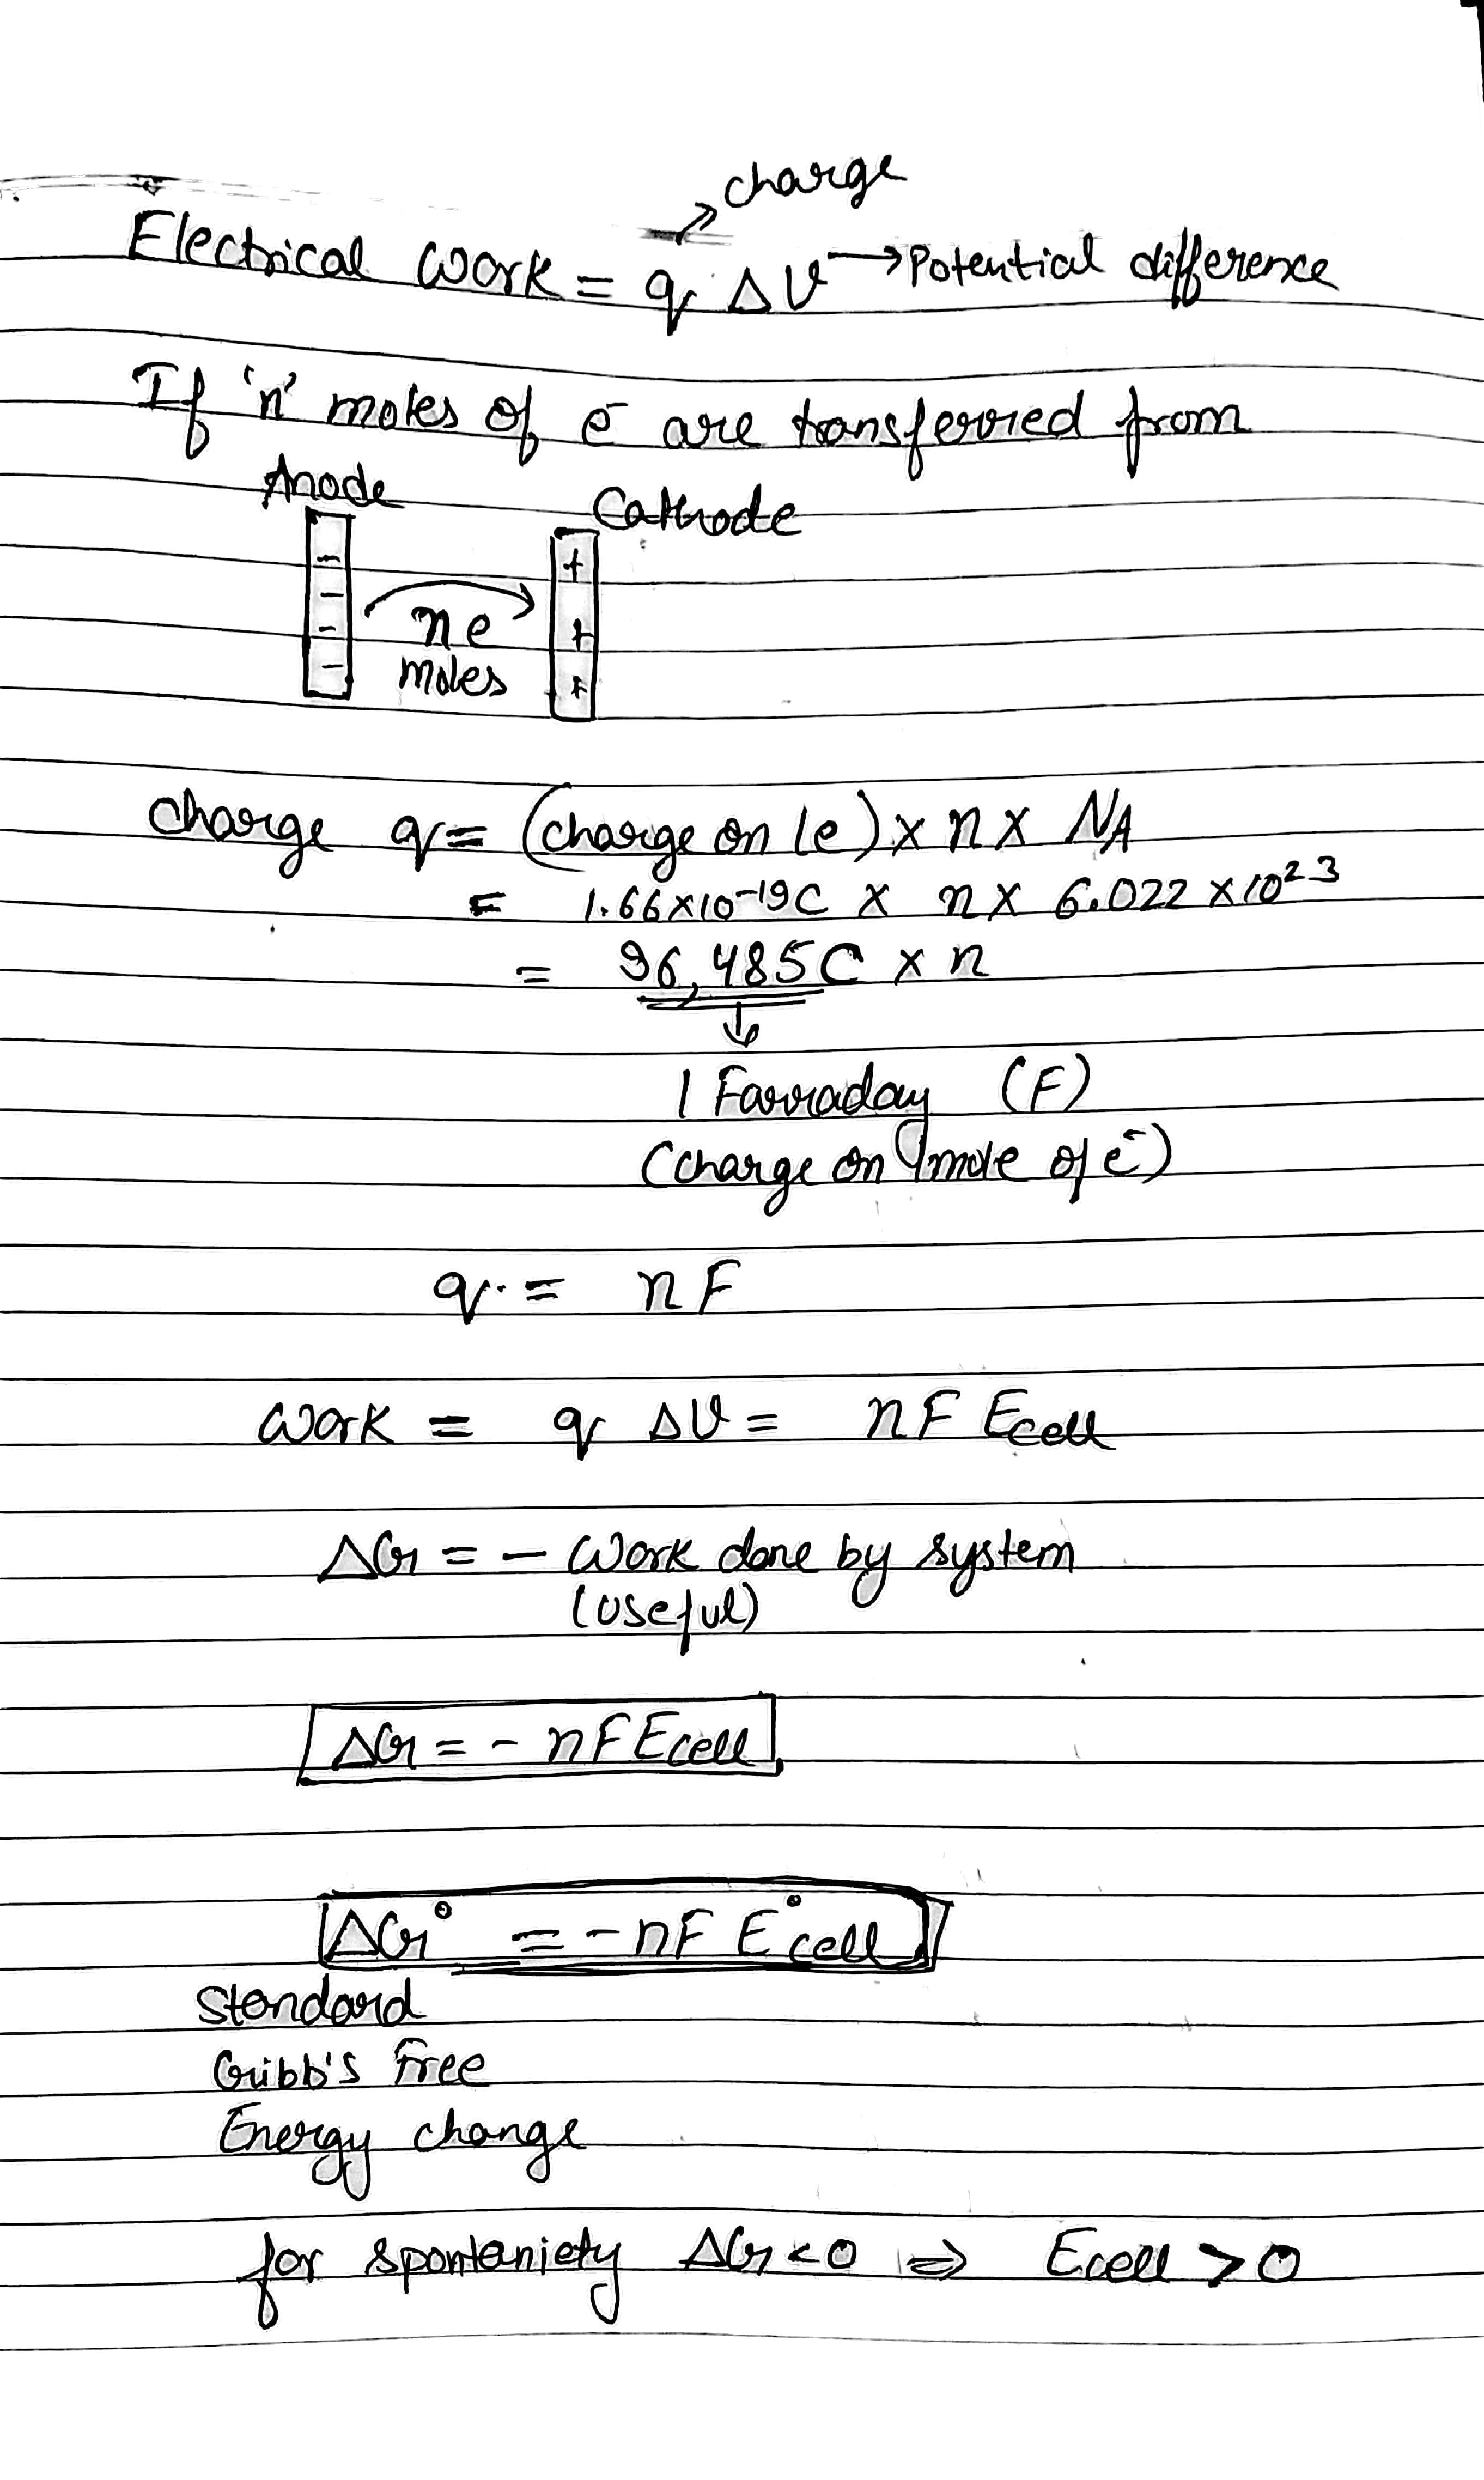 charge
Electrical work = q ΔV → Potential difference
If 'n' moles of e⁻ are transferred from
Anode
Cathode
ne
moles
charge q = (charge on 1e) × n × NA
= 1.66×10⁻¹⁹C × n × 6.022 × 10²³
= 96,485C × n
1 Farraday (F)
(charge on 1 mole of e⁻)
q = nF
work = q ΔV = nF Ecell
ΔG = - work done by system
(useful)
ΔG = - nFEcell
ΔG° = -nF E°cell
Standard
Gibb's Free
Energy change
for spontaniety ΔG<0 ⇒ Ecell >0